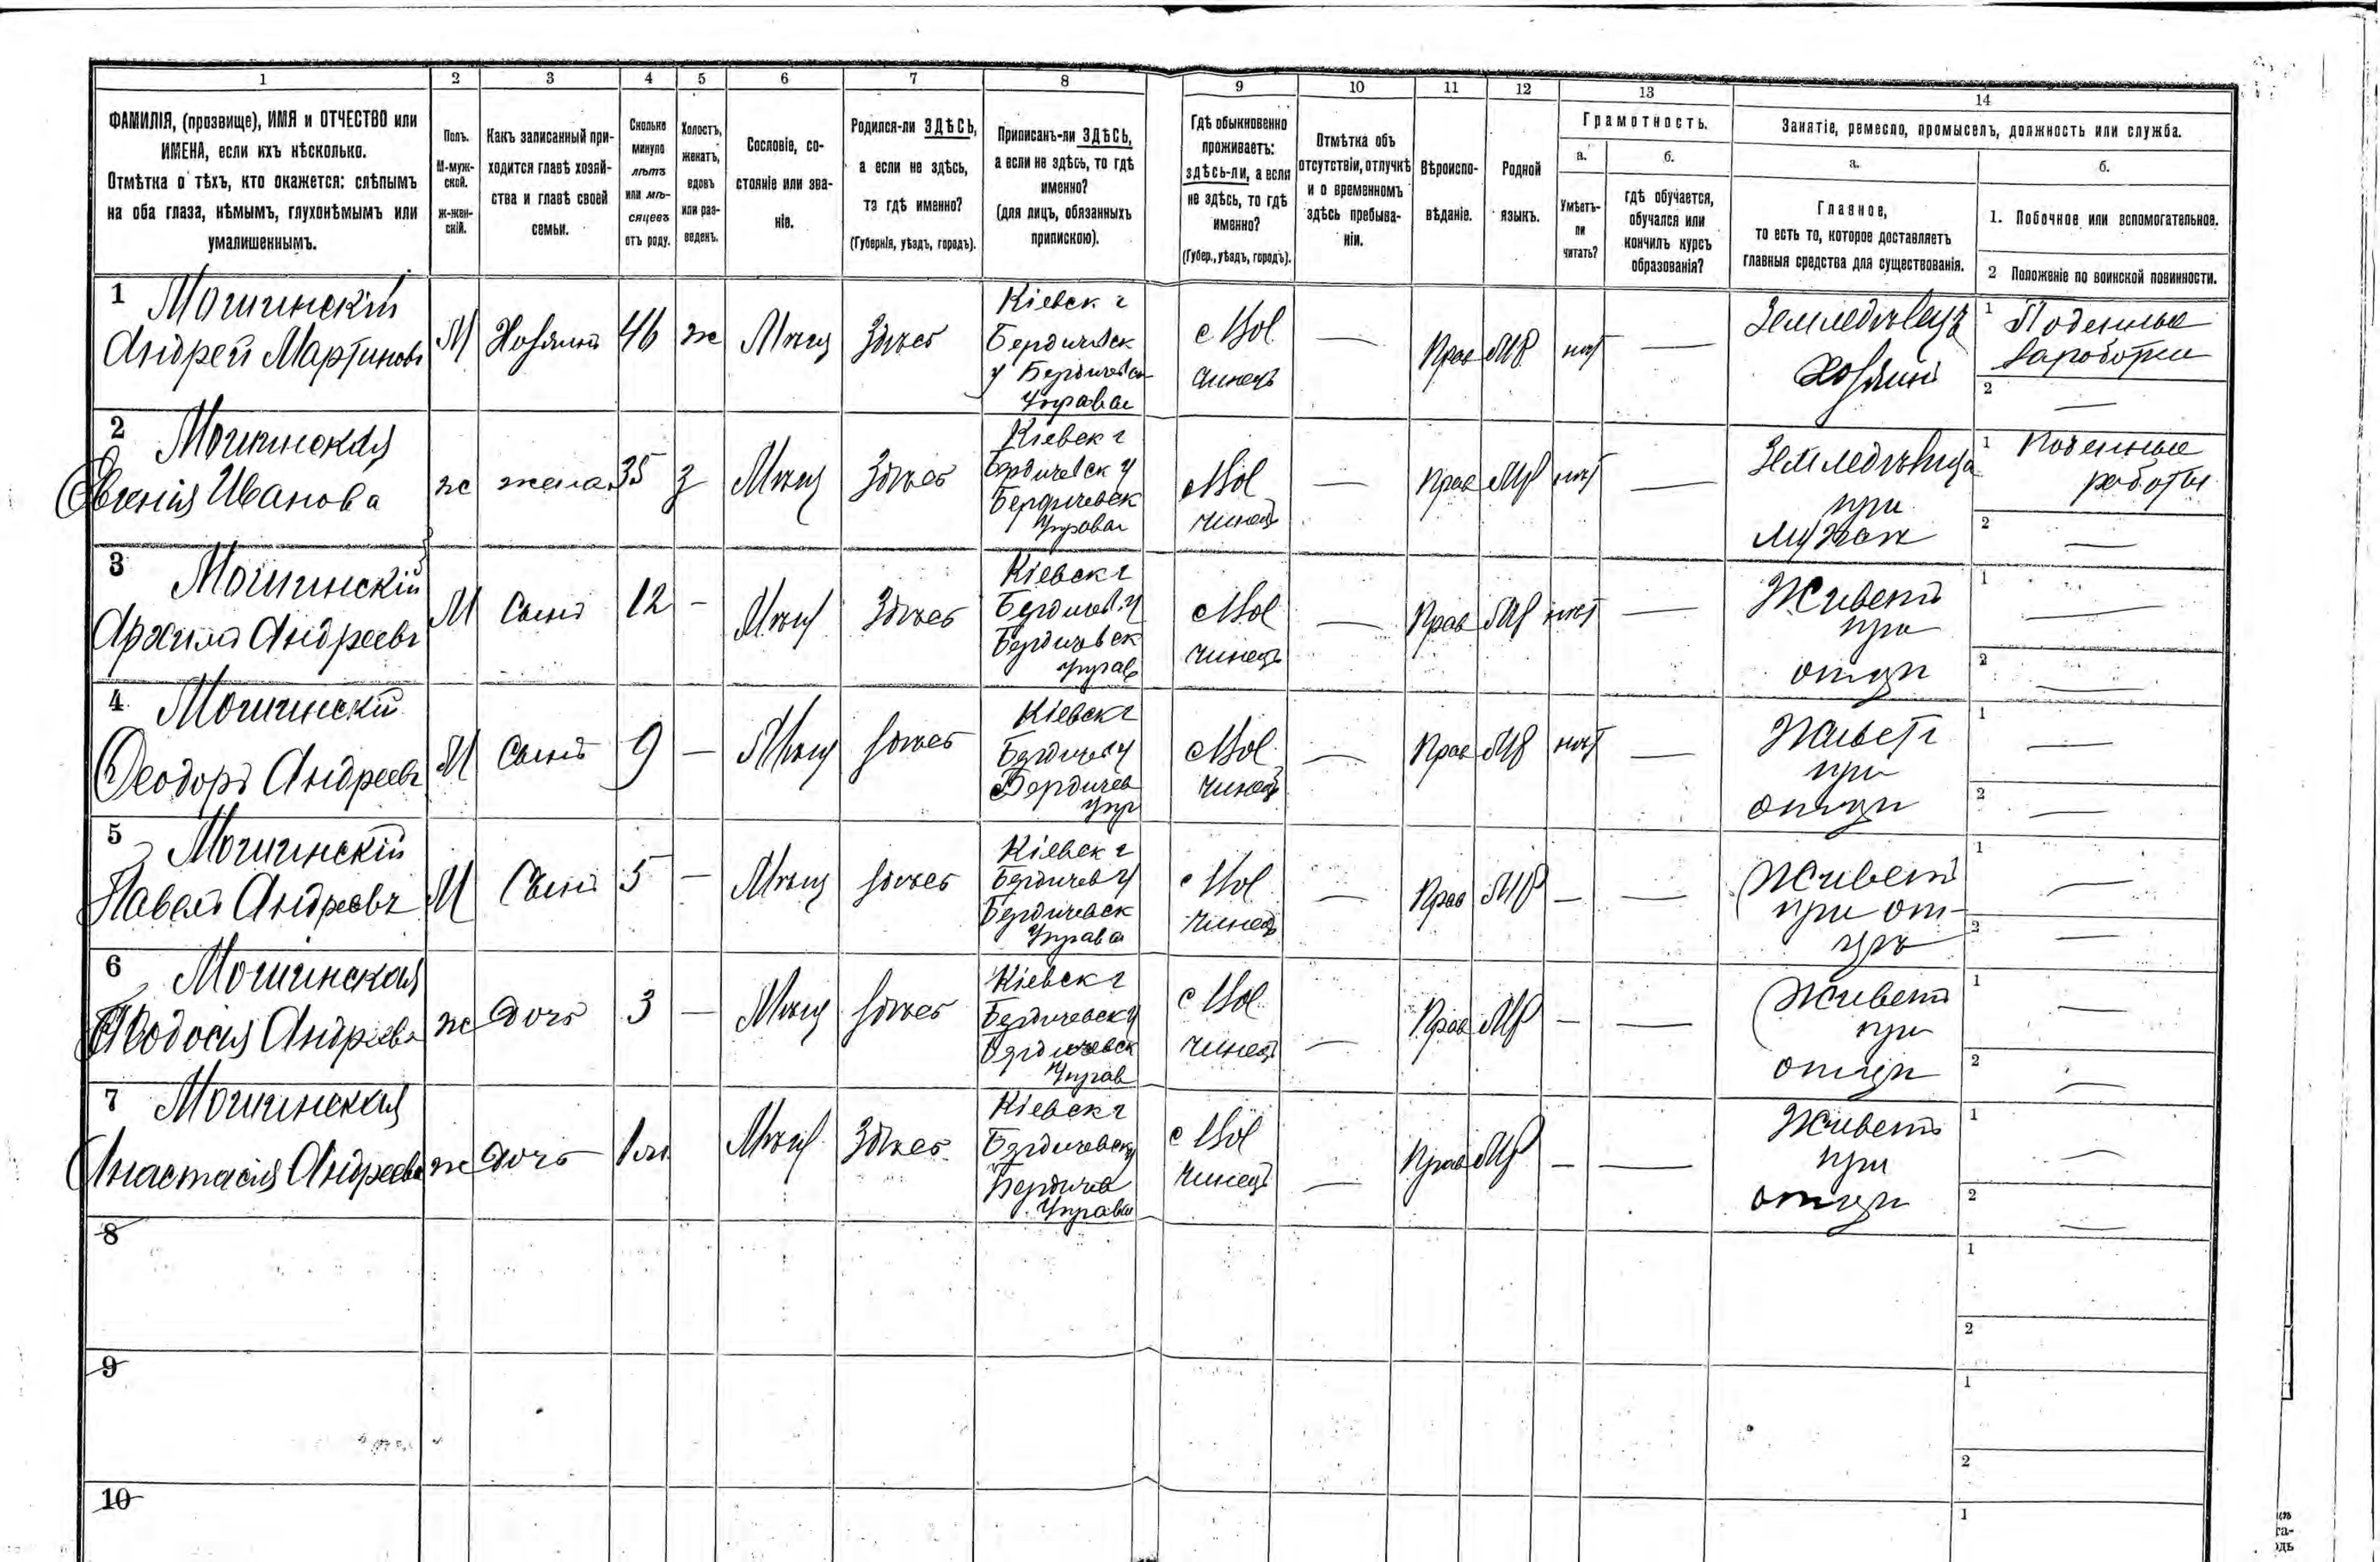 1 2 3 4 5 6 7 8 9 10 11 12 13 14
ФАМИЛІЯ, (прозвище), ИМЯ и ОТЧЕСТВО или
ИМЕНА, если ихъ нѣсколько.
Отмѣтка о тѣхъ, кто окажется: слѣпымъ
на оба глаза, нѣмымъ, глухонѣмымъ или
умалишеннымъ.
Полъ.
М-муж-
ской.
ж-жен-
скій.
Какъ записанный при-
ходится главѣ хозяй-
ства и главѣ своей
семьи.
Сколько
минуло
лѣтъ
или мѣ-
сяцевъ
отъ роду.
Холостъ,
женатъ,
вдовъ
или раз-
веденъ.
Сословіе, со-
стояніе или зва-
ніе.
Родился-ли ЗДѢСЬ,
а если не здѣсь,
то гдѣ именно?
(Губернія, уѣздъ, городъ).
Приписанъ-ли ЗДѢСЬ,
а если не здѣсь, то гдѣ
именно?
(для лицъ, обязанныхъ
припискою).
Гдѣ обыкновенно
проживаетъ:
здѣсь-ли, а если
не здѣсь, то гдѣ
именно?
(Губер., уѣздъ, городъ).
Отмѣтка объ
отсутствіи, отлучкѣ
и о временномъ
здѣсь пребыва-
ніи.
Вѣроиспо-
вѣданіе.
Родной
языкъ.
Грамотность.
а.
Умѣетъ-
ли
читать?
б.
гдѣ обучается,
обучался или
кончилъ курсъ
образованія?
Занятіе, ремесло, промыселъ, должность или служба.
а.
Главное,
то есть то, которое доставляетъ
главныя средства для существованія.
б.
1. Побочное или вспомогательное.
2 Положеніе по воинской повинности.
1
Андрей Мартиновъ
М Хозяинъ 46 ж Мѣщ Здѣсь
Кіевск г
Бердичевск
у Бердичевск
Управа
Прав МР нѣт
Земледѣлецъ
Хозяинъ
1 Поденные
заработки
2
2
Евгенія Иванова
ж жена 35 з Мѣщ Здѣсь
Кіевск г
Бердичевск у
Бердичевск
Управа
Прав МР нѣт
при
мужѣ
1 Поденные
работы
2
3
Андреевъ
М Сынъ 12 - Мѣщ Здѣсь
Кіевск г
Бердичев у
Бердичевск
Управ
Прав МР нѣт
Живетъ
при
отцѣ
1
2
4
Феодоръ Андреевъ
М Сынъ 9 - Мѣщ Здѣсь
Кіевск г
Бердичев у
Бердичев
Упр
Прав МР нѣт
Живетъ
при
отцѣ
1
2
5
Павелъ Андреевъ
М Сынъ 5 - Мѣщ Здѣсь
Кіевск г
Бердичев у
Бердичевск
Управа
Прав МР - -
Живетъ
при от-
цѣ
1
2
6
Феодосія Андреева
ж Дочь 3 - Мѣщ Здѣсь
Кіевск г
Бердичевск у
Бердичевск
Управ
Прав МР - -
Живетъ
при
отцѣ
1
2
7
Анастасія Андреева
ж Дочь Мѣщ Здѣсь
Кіевск г
Бердичевск у
Бердичев
Управа
Прав МР - -
Живетъ
при
отцѣ
1
2
8
1
2
9
1
2
10
1